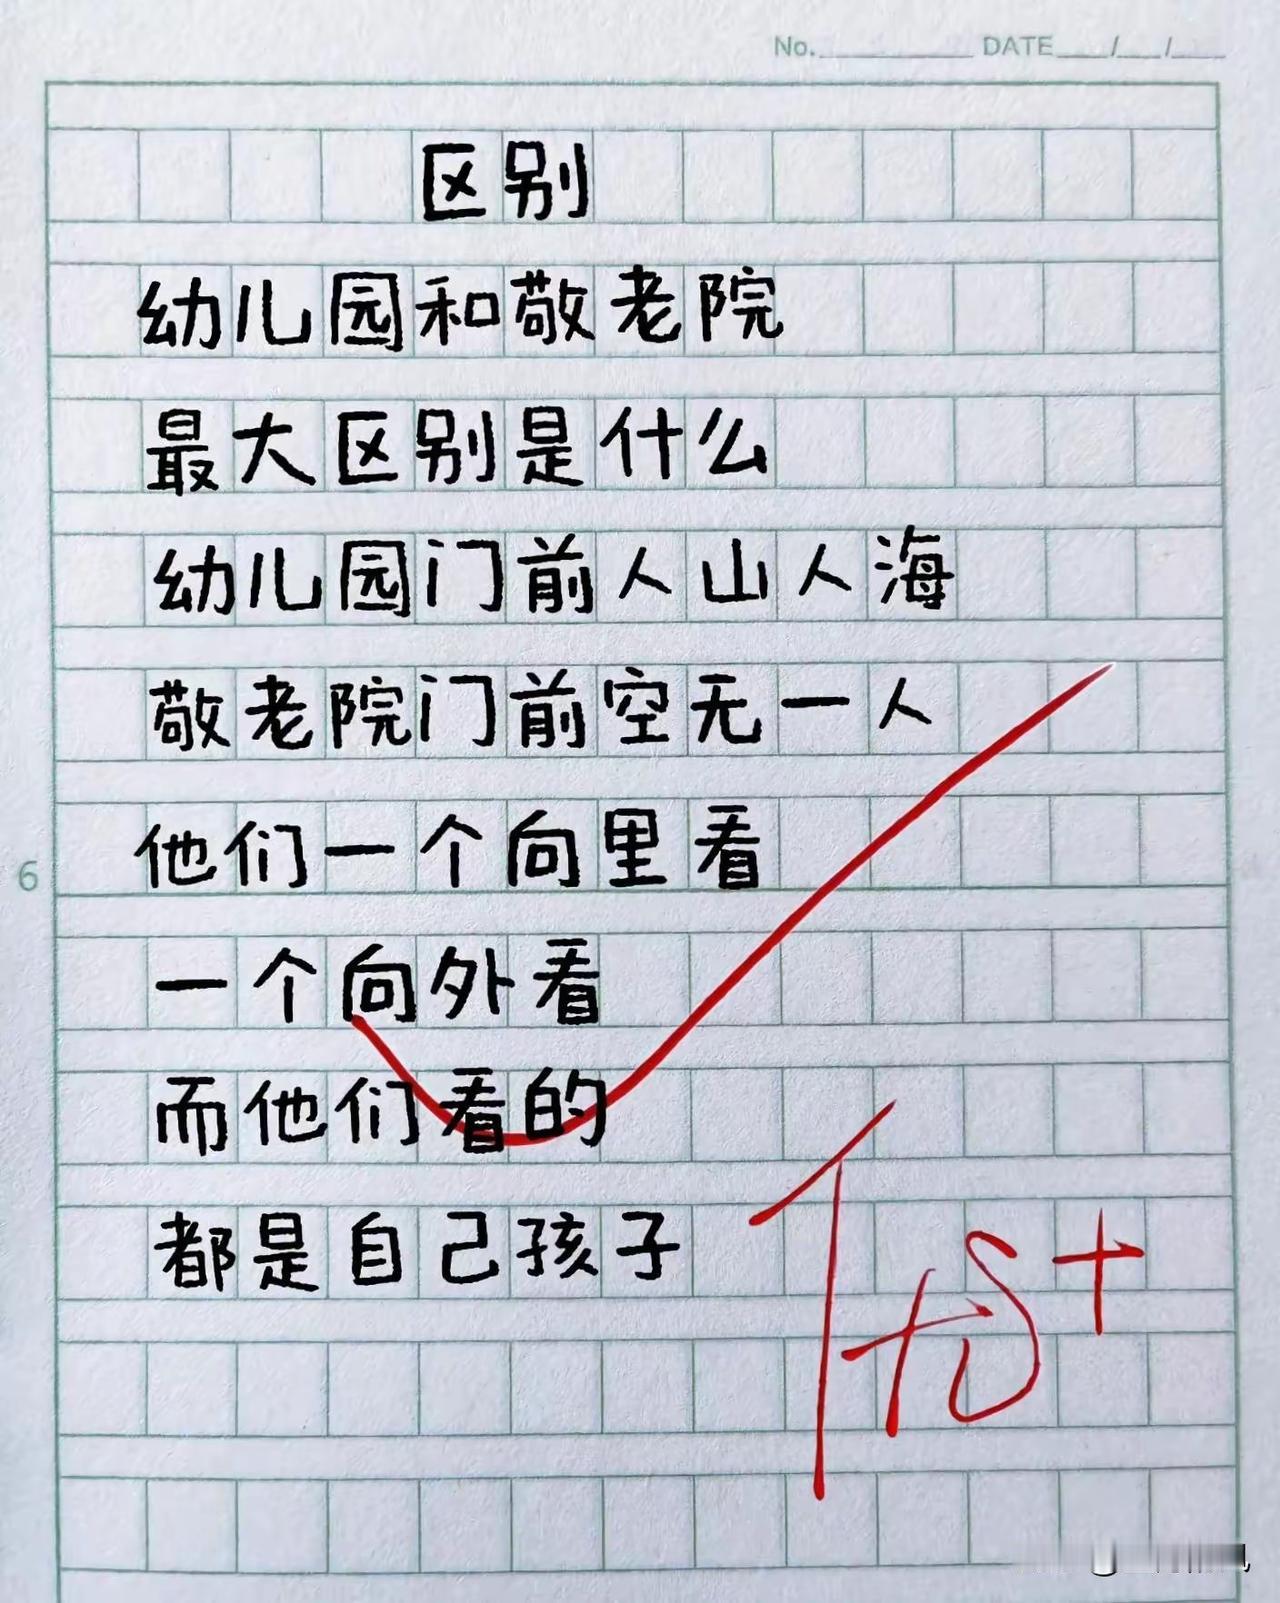 No. DATE / /
区别
幼儿园和敬老院
最大区别是什么
幼儿园门前人山人海
敬老院门前空无一人
他们一个向里看
6
一个向外看
而他们看的
都是自己孩子